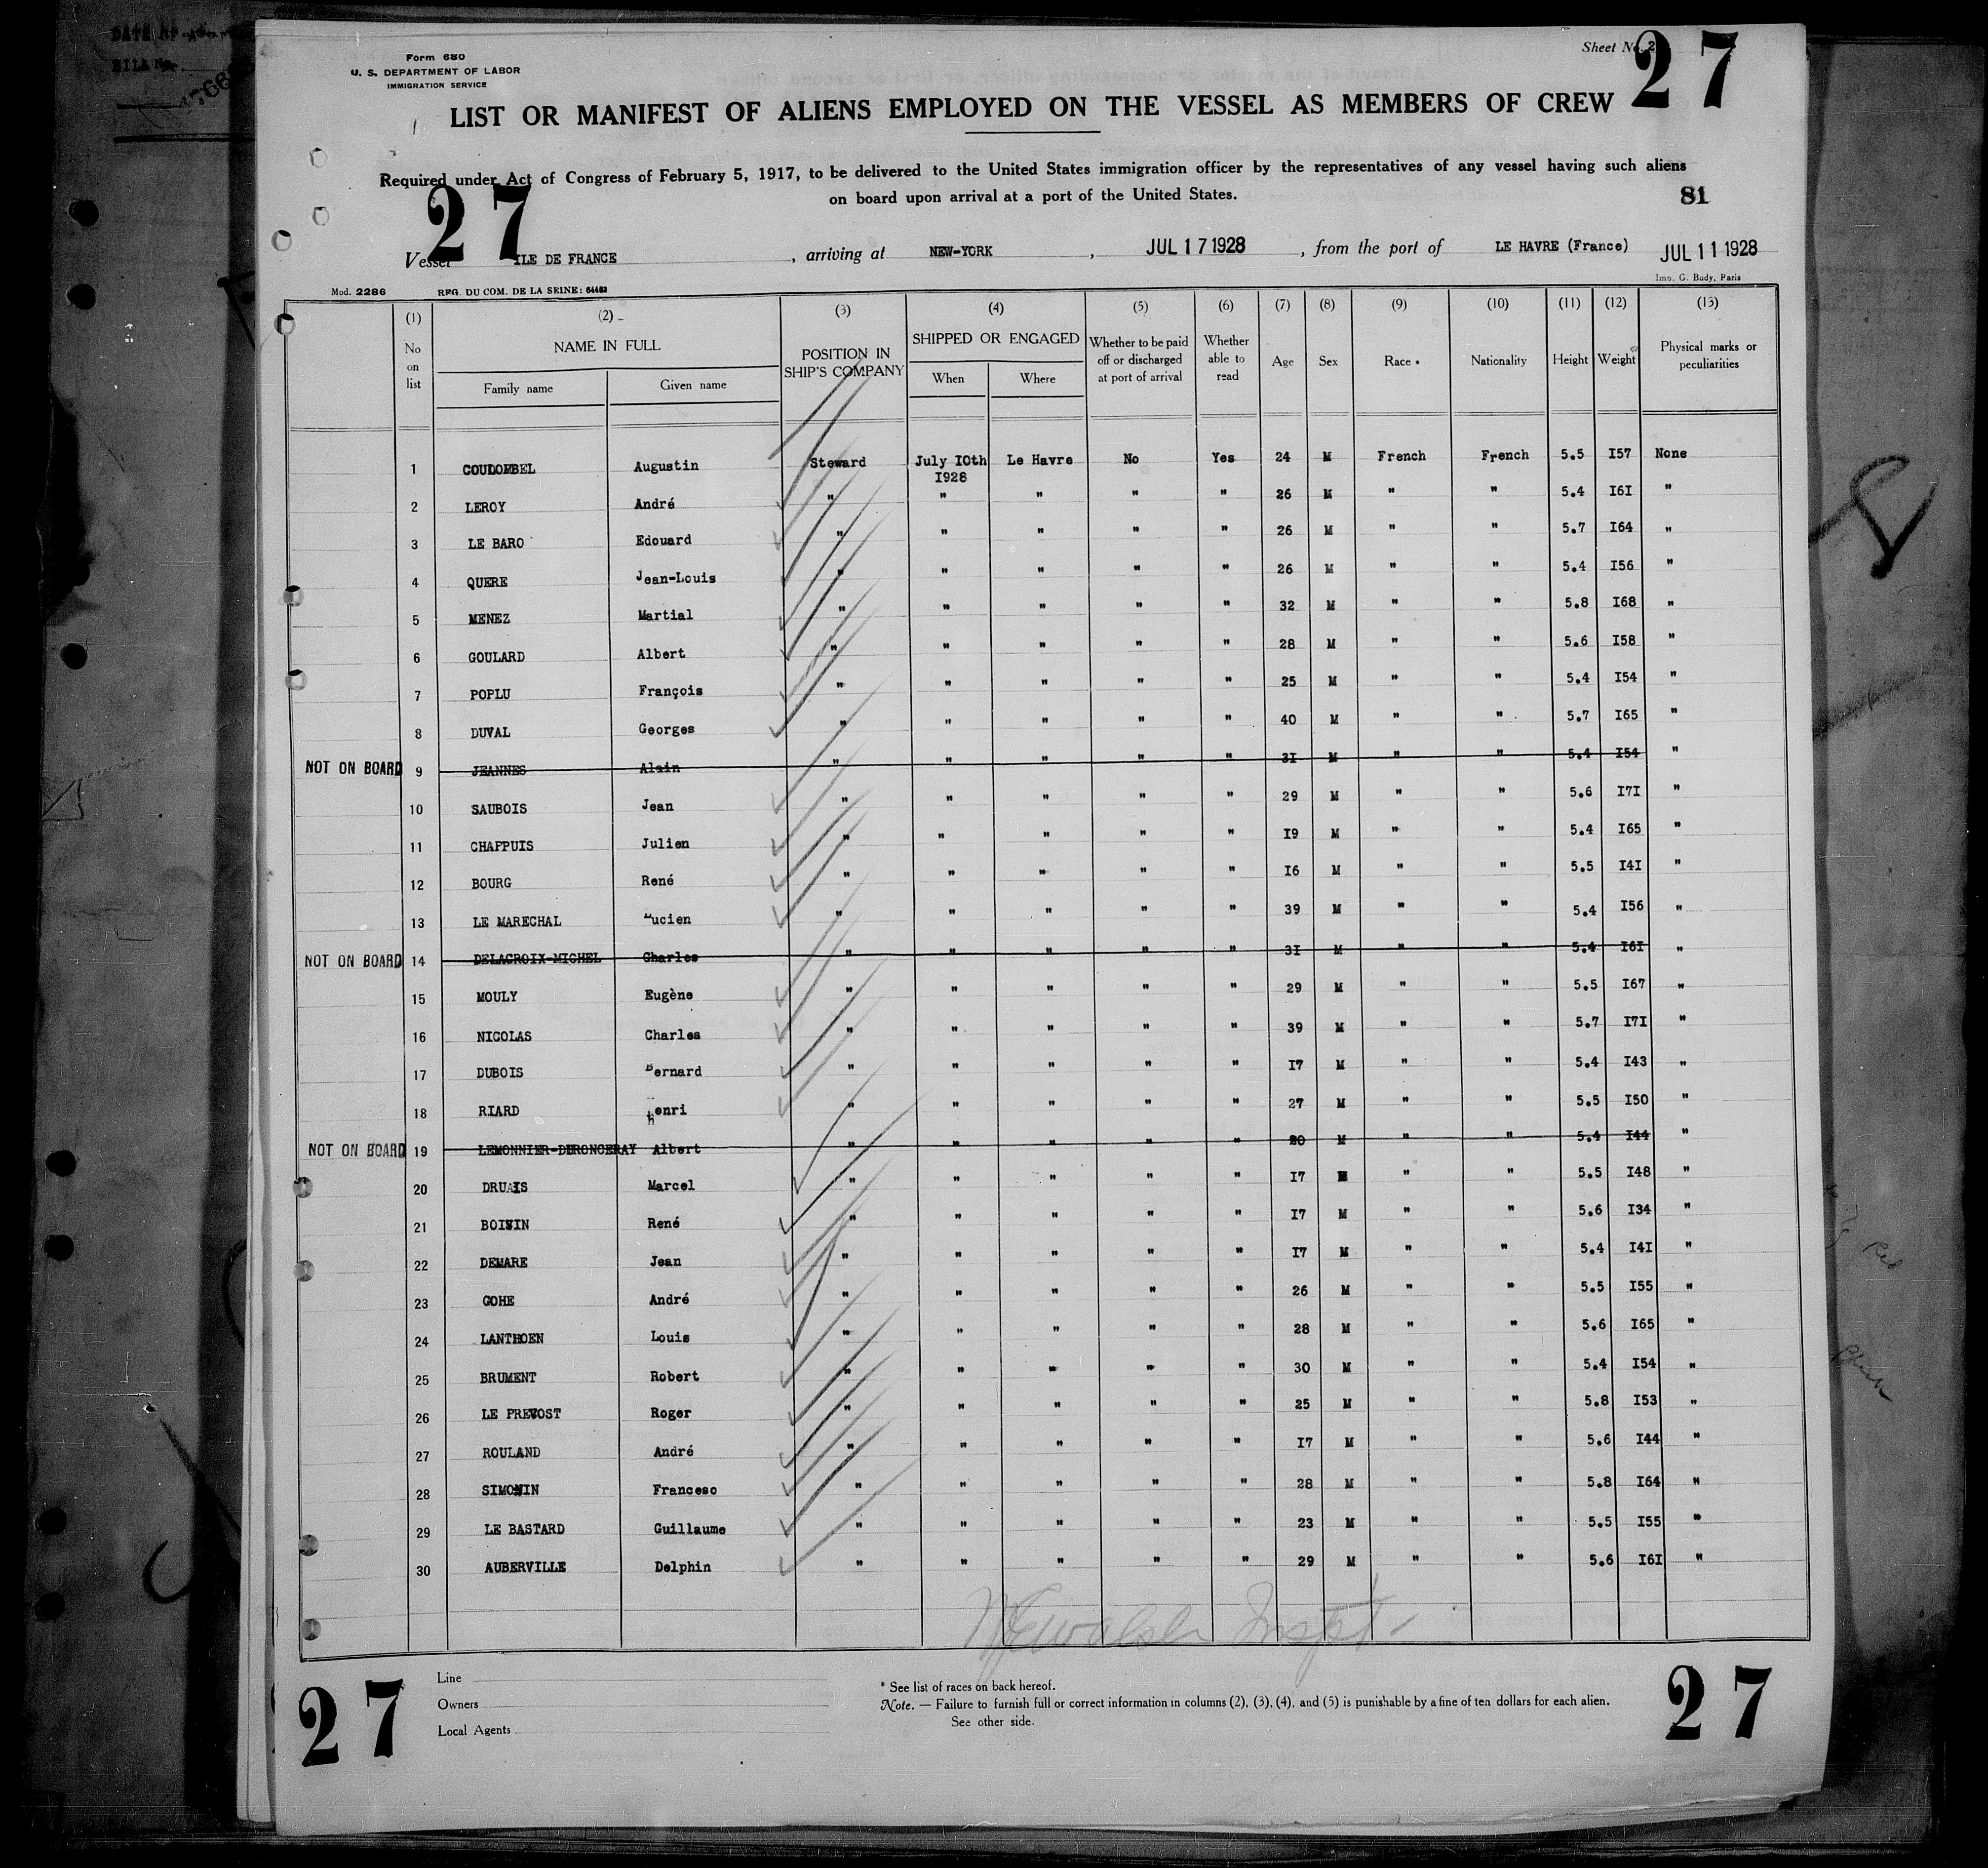 Form 680
U. S. DEPARTMENT OF LABOR
IMMIGRATION SERVICE
Sheet No. 2
27
LIST OR MANIFEST OF ALIENS EMPLOYED ON THE VESSEL AS MEMBERS OF CREW
Required under Act of Congress of February 5, 1917, to be delivered to the United States immigration officer by the representatives of any vessel having such aliens
on board upon arrival at a port of the United States.
81
27
Vessel ILE DE FRANCE , arriving at NEW-YORK , JUL 17 1928 , from the port of LE HAVRE (France) JUL 11 1928
Mod. 2286 REG. DU COM. DE LA SEINE: 64483 Imp. G. Budy, Paris
(1) (2) (3) (4) (5) (6) (7) (8) (9) (10) (11) (12) (13)
No on list NAME IN FULL Family name Given name POSITION IN SHIP'S COMPANY SHIPPED OR ENGAGED When Where Whether to be paid off or discharged at port of arrival Whether able to read Age Sex Race * Nationality Height Weight Physical marks or peculiarities
1 COULOMBEL Augustin Steward July I0th I928 Le Havre No Yes 24 M French French 5.5 I57 None
2 LEROY André " " " " " 26 M " " 5.4 I6I "
3 LE BARO Edouard " " " " " 26 M " " 5.7 I64 "
4 QUERE Jean-Louis " " " " " 26 M " " 5.4 I56 "
5 MENEZ Martial " " " " " 32 M " " 5.8 I68 "
6 GOULARD Albert " " " " " 28 M " " 5.6 I58 "
7 POPLU François " " " " " 25 M " " 5.4 I54 "
8 DUVAL Georges " " " " " 40 M " " 5.7 I65 "
NOT ON BOARD 9 JEANNES Alain " " " " " 3I M " " 5.4 I54 "
10 SAUBOIS Jean " " " " " 29 M " " 5.6 I7I "
11 CHAPPUIS Julien " " " " " I9 M " " 5.4 I65 "
12 BOURG René " " " " " I6 M " " 5.5 I4I "
13 LE MARECHAL Lucien " " " " " 39 M " " 5.4 I56 "
NOT ON BOARD 14 DELACROIX-MICHEL Charles " " " " " 3I M " " 5.4 I6I "
15 MOULY Eugène " " " " " 29 M " " 5.5 I67 "
16 NICOLAS Charles " " " " " 39 M " " 5.7 I7I "
17 DUBOIS Bernard " " " " " I7 M " " 5.4 I43 "
18 RIARD henri " " " " " 27 M " " 5.5 I50 "
NOT ON BOARD 19 LEMONNIER-DURONCERAY Albert " " " " " 20 M " " 5.4 I44 "
20 DRUAIS Marcel " " " " " I7 M " " 5.5 I48 "
21 BOISIN René " " " " " I7 M " " 5.6 I34 "
22 DEMARE Jean " " " " " I7 M " " 5.4 I4I "
23 GOHE André " " " " " 26 M " " 5.5 I55 "
24 LANTHOEN Louis " " " " " 28 M " " 5.6 I65 "
25 BRUMENT Robert " " " " " 30 M " " 5.4 I54 "
26 LE PREVOST Roger " " " " " 25 M " " 5.8 I53 "
27 ROULAND André " " " " " I7 M " " 5.6 I44 "
28 SIMONIN Franceso " " " " " 28 M " " 5.8 I64 "
29 LE BASTARD Guillaume " " " " " 23 M " " 5.5 I55 "
30 AUBERVILLE Delphin " " " " " 29 M " " 5.6 I6I "
Walsh Inspt.
27
Line
Owners
Local Agents
* See list of races on back hereof.
Note. — Failure to furnish full or correct information in columns (2), (3), (4), and (5) is punishable by a fine of ten dollars for each alien.
See other side.
27